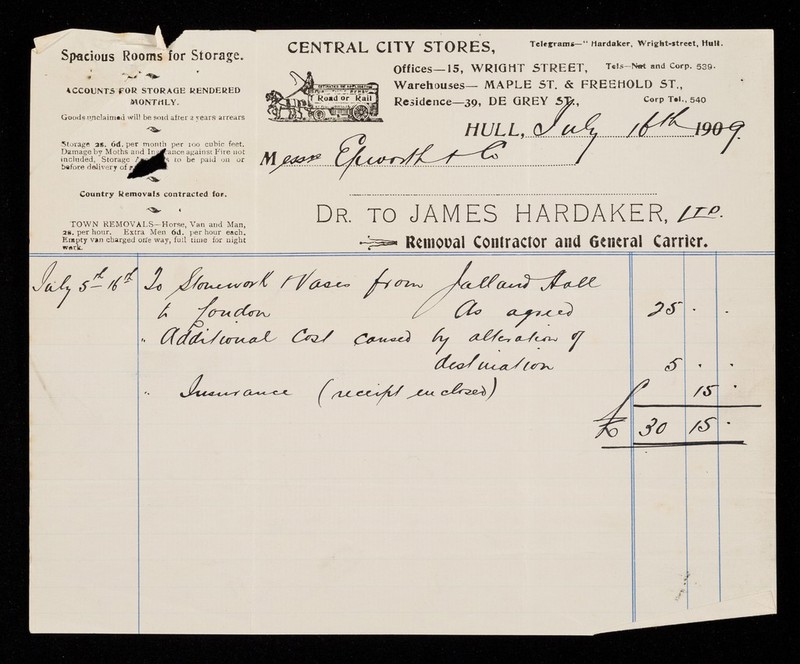 Spacious Rooms for Storage.
ACCOUNTS FOR STORAGE RENDERED
MONTHLY.
Goods unclaimed will be sold after 2 years arrears
Storage 2s. 6d. per month per 100 cubic feet.
Damage by Moths and Insurance against Fire not
included, Storage to be paid on or
before delivery of
Country Removals contracted for.
TOWN REMOVALS—Horse, Van and Man,
2s. per hour. Extra Men 6d. per hour each.
Empty van charged one way, full time for night
work.
CENTRAL CITY STORES,
Telegrams—"Hardaker, Wright-street, Hull.
Offices—15, WRIGHT STREET, Tels—Nat and Corp. 539.
Warehouses— MAPLE ST. & FREEHOLD ST.,
Residence—39, DE GREY ST., Corp Tel., 540
Road or Rail
HULL, July 16th 1909.
Messrs Epworth & Co
DR. TO JAMES HARDAKER, LTD.
Removal Contractor and General Carrier.
July 5th–16th To Stonework & Vases from Jalland Hall
to London As agreed 25 . .
" Additional Cost caused by alteration of
destination 5 . .
" Insurance (receipt enclosed) 15 .
£ 30 15 .